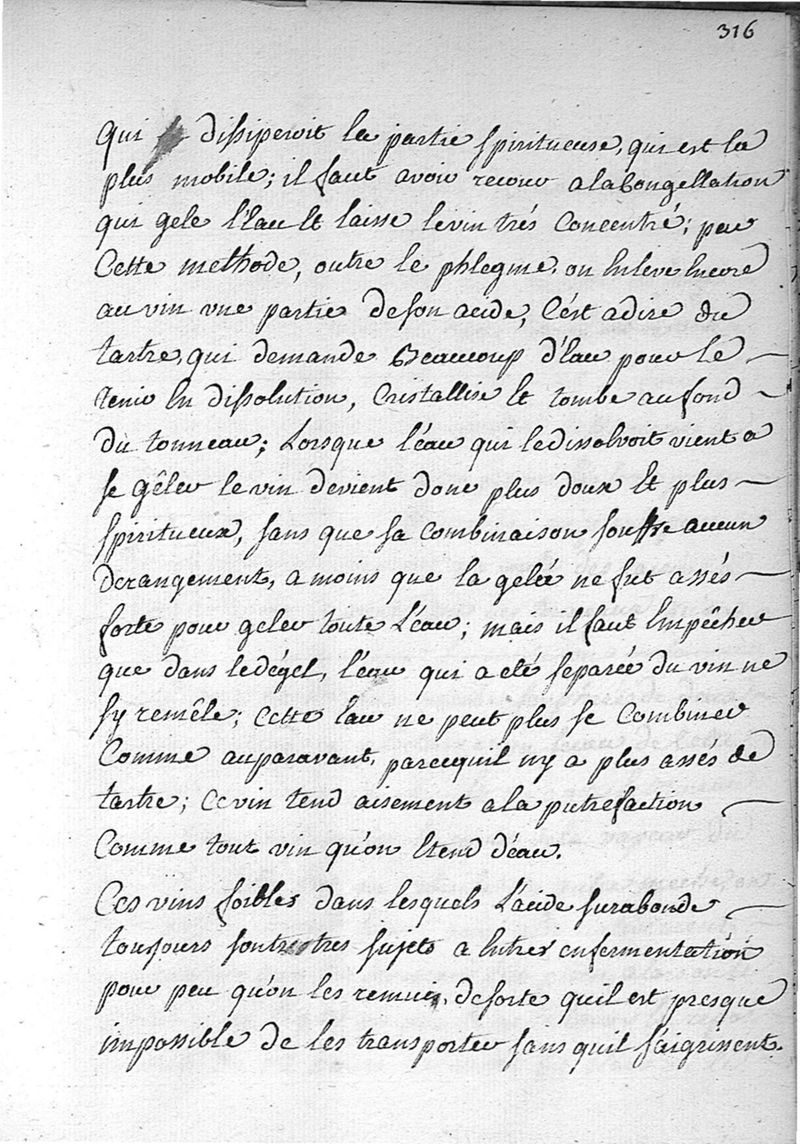 316
qui dissiperoit la partie spiritueuse, qui est la
plus mobile; il faut avoir recour a la Congellation
qui gele l'Eau Et laisse le vin trés Concentré; par
Cette methode, outre le phlegme, on Enleve Encore
au vin une partie de son acide, C'ést a dire du
tartre, qui demande Beaucoup d'Eau pour le
tenir En dissolution, Cristallise Et tombe au fond
du tonneau; Lorsque l'éau qui le dissolvoit vient a
se gêler le vin devient donc plus doux Et plus
spiritueux, sans que sa Combinaison souffre aucun
Derangement, a moins que la gelée ne fut assés
forte pour geler toute L'éau; mais il faut Empêcher
que dans le dégel, l'éau qui a eté separée du vin ne
s'y remêle; Cette Eau ne peut plus se Combiner
Comme auparavant, parcequil n'y a plus assés de
tartre; Ce vin tend aisement a la putrefaction
Comme tout vin qu'on Etend d'éau.
Ces vins foibles dans lesquels L'acide surabonde
toujours sont tres sujets a Entrer en fermentation
pour peu qu'on les remuë, de sorte quil est presque
impossible de les transporter sans quil s'aigrissent.